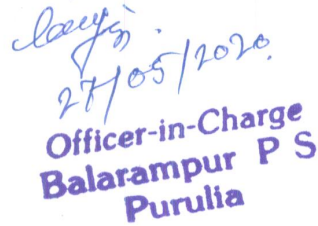 27/05/2020.
Officer-in-Charge
Balarampur P S
Purulia